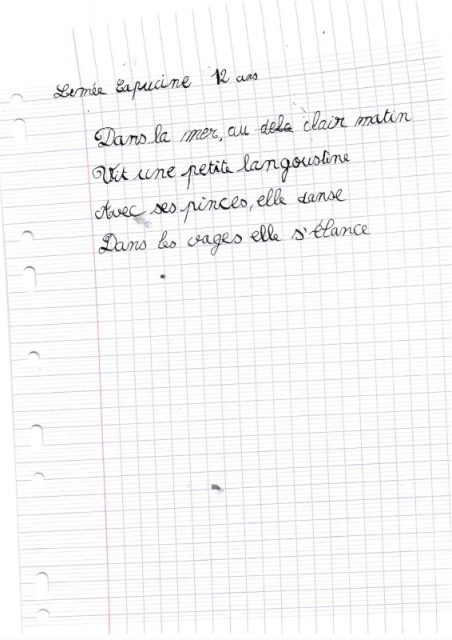 Lemée Capucine 12 ans
Dans la mer, au delà clair matin
Vit une petite langoustine
Avec ses pinces, elle danse
Dans les vages elle s'élance